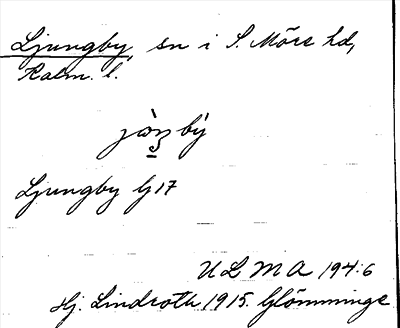 Ljungby, sn i S. Möre hd,
Kalm. l.
Ljungby lj 17
ULMA 194:6
Hj. Lindroth 1915. Glömminge